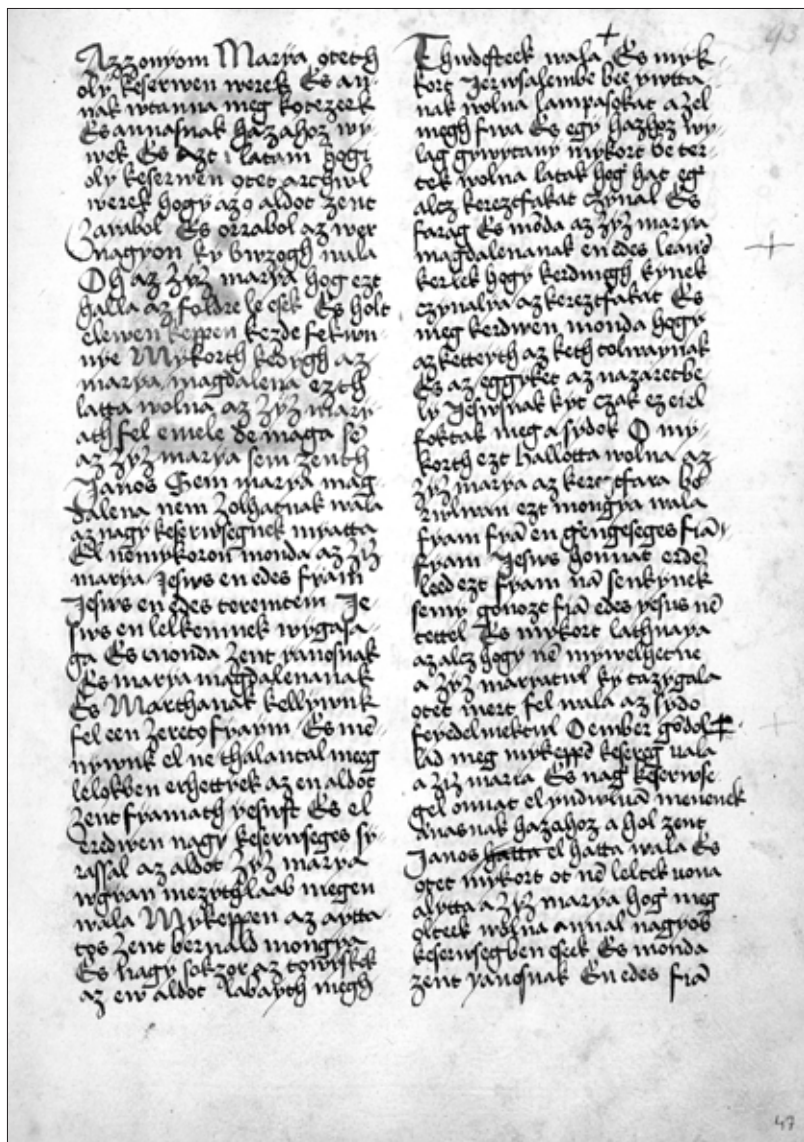 Azzonyom Marya oteth
oly keserwen werek Es an-
nak wtanna meg kotezeek
Es annasnak hazahoz wy-
wek Es azt latam hogi
oly keserwen otet archwl
werek hogy az o aldot zent
zaiabol Es orrabol az wer
nagyon ky bwzogh wala
Oh az zyz marya hog ezt
halla az foldre le esek Es holt
elewen keppen kezde fekwn-
nye Mykorth kedygh az
marya magdalena ezth
latta wolna az zyz mary-
ath fel emele de maga se
az zyz marya sem zenth
Janos Sem marya mag-
dalena nem zolhatnak wala
az nagy keserwsegnek myatta
El nemykoron monda az zyz
marya Jesws en edes fyam
Jesws en edes toremtem Je-
sws en lelkemnek wygasa-
ga Es monda zent yanosnak
Es marya magdalenanak
Es Marthanak kellywnk
fel een zereto fyaym Es mē-
nywnk el ne thalantal meeg
lelokben erhettyek az en aldot
zent fyamath yesust Es el
eredwen nagy keserwseges sy-
rassal az aldot zyz marya
wgyan mezythlaab megen
wala Mykeppen az aytta-
tos zent bernald mongya
Es nagy sokzor az towyskek
az ew aldot labayth megh
43
Thwdesteek wala Es myk-
kort Jerwsalembe bee ywtta-
nak wolna lampasokat a zel
megh fwa Es egy hazhoz wy-
lag gywytany mykort be ter-
tek wolna latak hog hat eg
alcz kereztfakat czynal Es
farag Es mōda az zyz marya
magdalenanak en edes leanō
kerlek hogy kerdmegh kynek
czynalya az kereztfakat Es
meg kerdwen monda hogy
az ketteyth az keth tolwaynak
Es az eggyket az nazaretbe-
ly Jeswsnak kyt czak ez eiel
foktak meg a sydok O my-
korth ezt hallotta wolna az
zyz marya az kereztfara bo-
rulwan ezt mongya wala
fyam fyā en gengeseges fiā
fyam Jesws honnat erdē-
leed ezt fyam nā senkynek
semy gonozt fiā edes yesus nē
tettel Es mykort lathnaya
az alcz hogy nē mywelhetne
a zyz maryatwl ky tazygala
otet mert fel wala az sydo
feyedelmektwl O ember gōdol-
lad meg mykeppē kesereg vala
a zyz maria Es nag keserwse-
gel onnat el yndwlwā menenek
Anasnak hazahoz a hol zent
Janos hatta el hatta wala Es
otet mykort ot nē leltek vona
alytta a zyz marya hog meg
olteek wolna annal nagyob
keserwsegben eseek Es monda
zent yanosnak En edes fiā
47